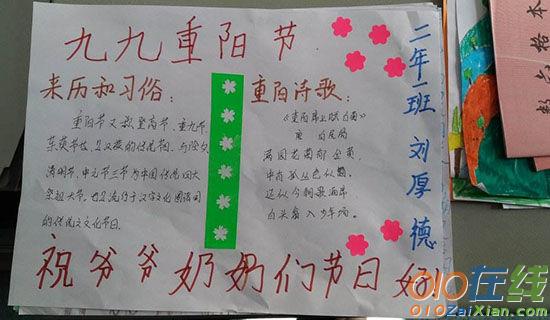 九九重阳节
来历和习俗:
重阳节又称登高节、重九节、
茱萸节等,是汉族的传统节日,与除夕、
清明节、中元节三节为中国传统四大
祭祖大节,也是流行于汉字文化圈诸国
的传统文化节日。
重阳诗歌:
《重阳席上赋白菊》
唐 白居易
满园花菊郁金黄,
中有孤丛色似霜。
还似今朝歌酒席
白头翁入少年场。
二年一班 刘厚德
祝爷爷奶奶们节日好
010在线
010ZaiXian.com